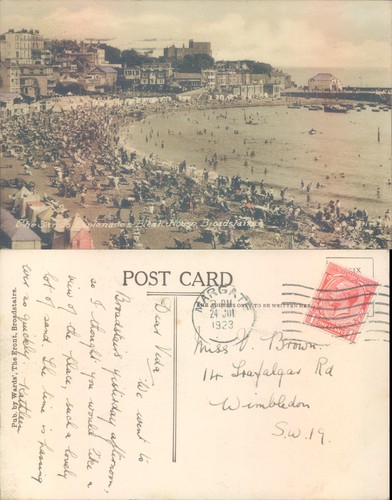 The Sands, Bleak House, Broadstairs
POST CARD
TO BE WRITTEN HERE
MARGATE
PM
24 JUL
1923
Dear Vida
We went to
Broadstairs yesterday afternoon,
so I thought you would like a
view of the place, such a lovely
lot of sand. The time is going
so quickly. Kathleen
Pub. by Wards', "The Front", Broadstairs.
Miss V. Brown
14 Trafalgar Rd
Wimbledon
S.W. 19.